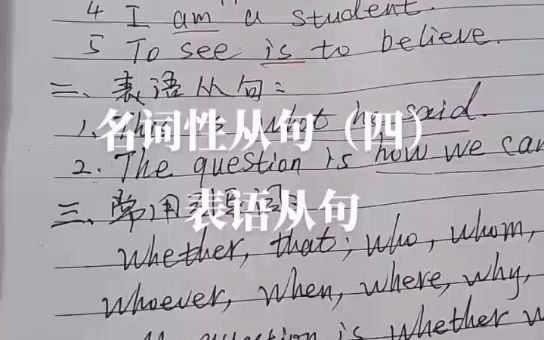 4 I am a student.
5 To see is to believe.
二、表语从句：
1. what he said.
名词性从句（四）
2. The question is how we can
三、常用
表语从句
whether, that; who, whom,
whoever, when, where, why,
question is whether